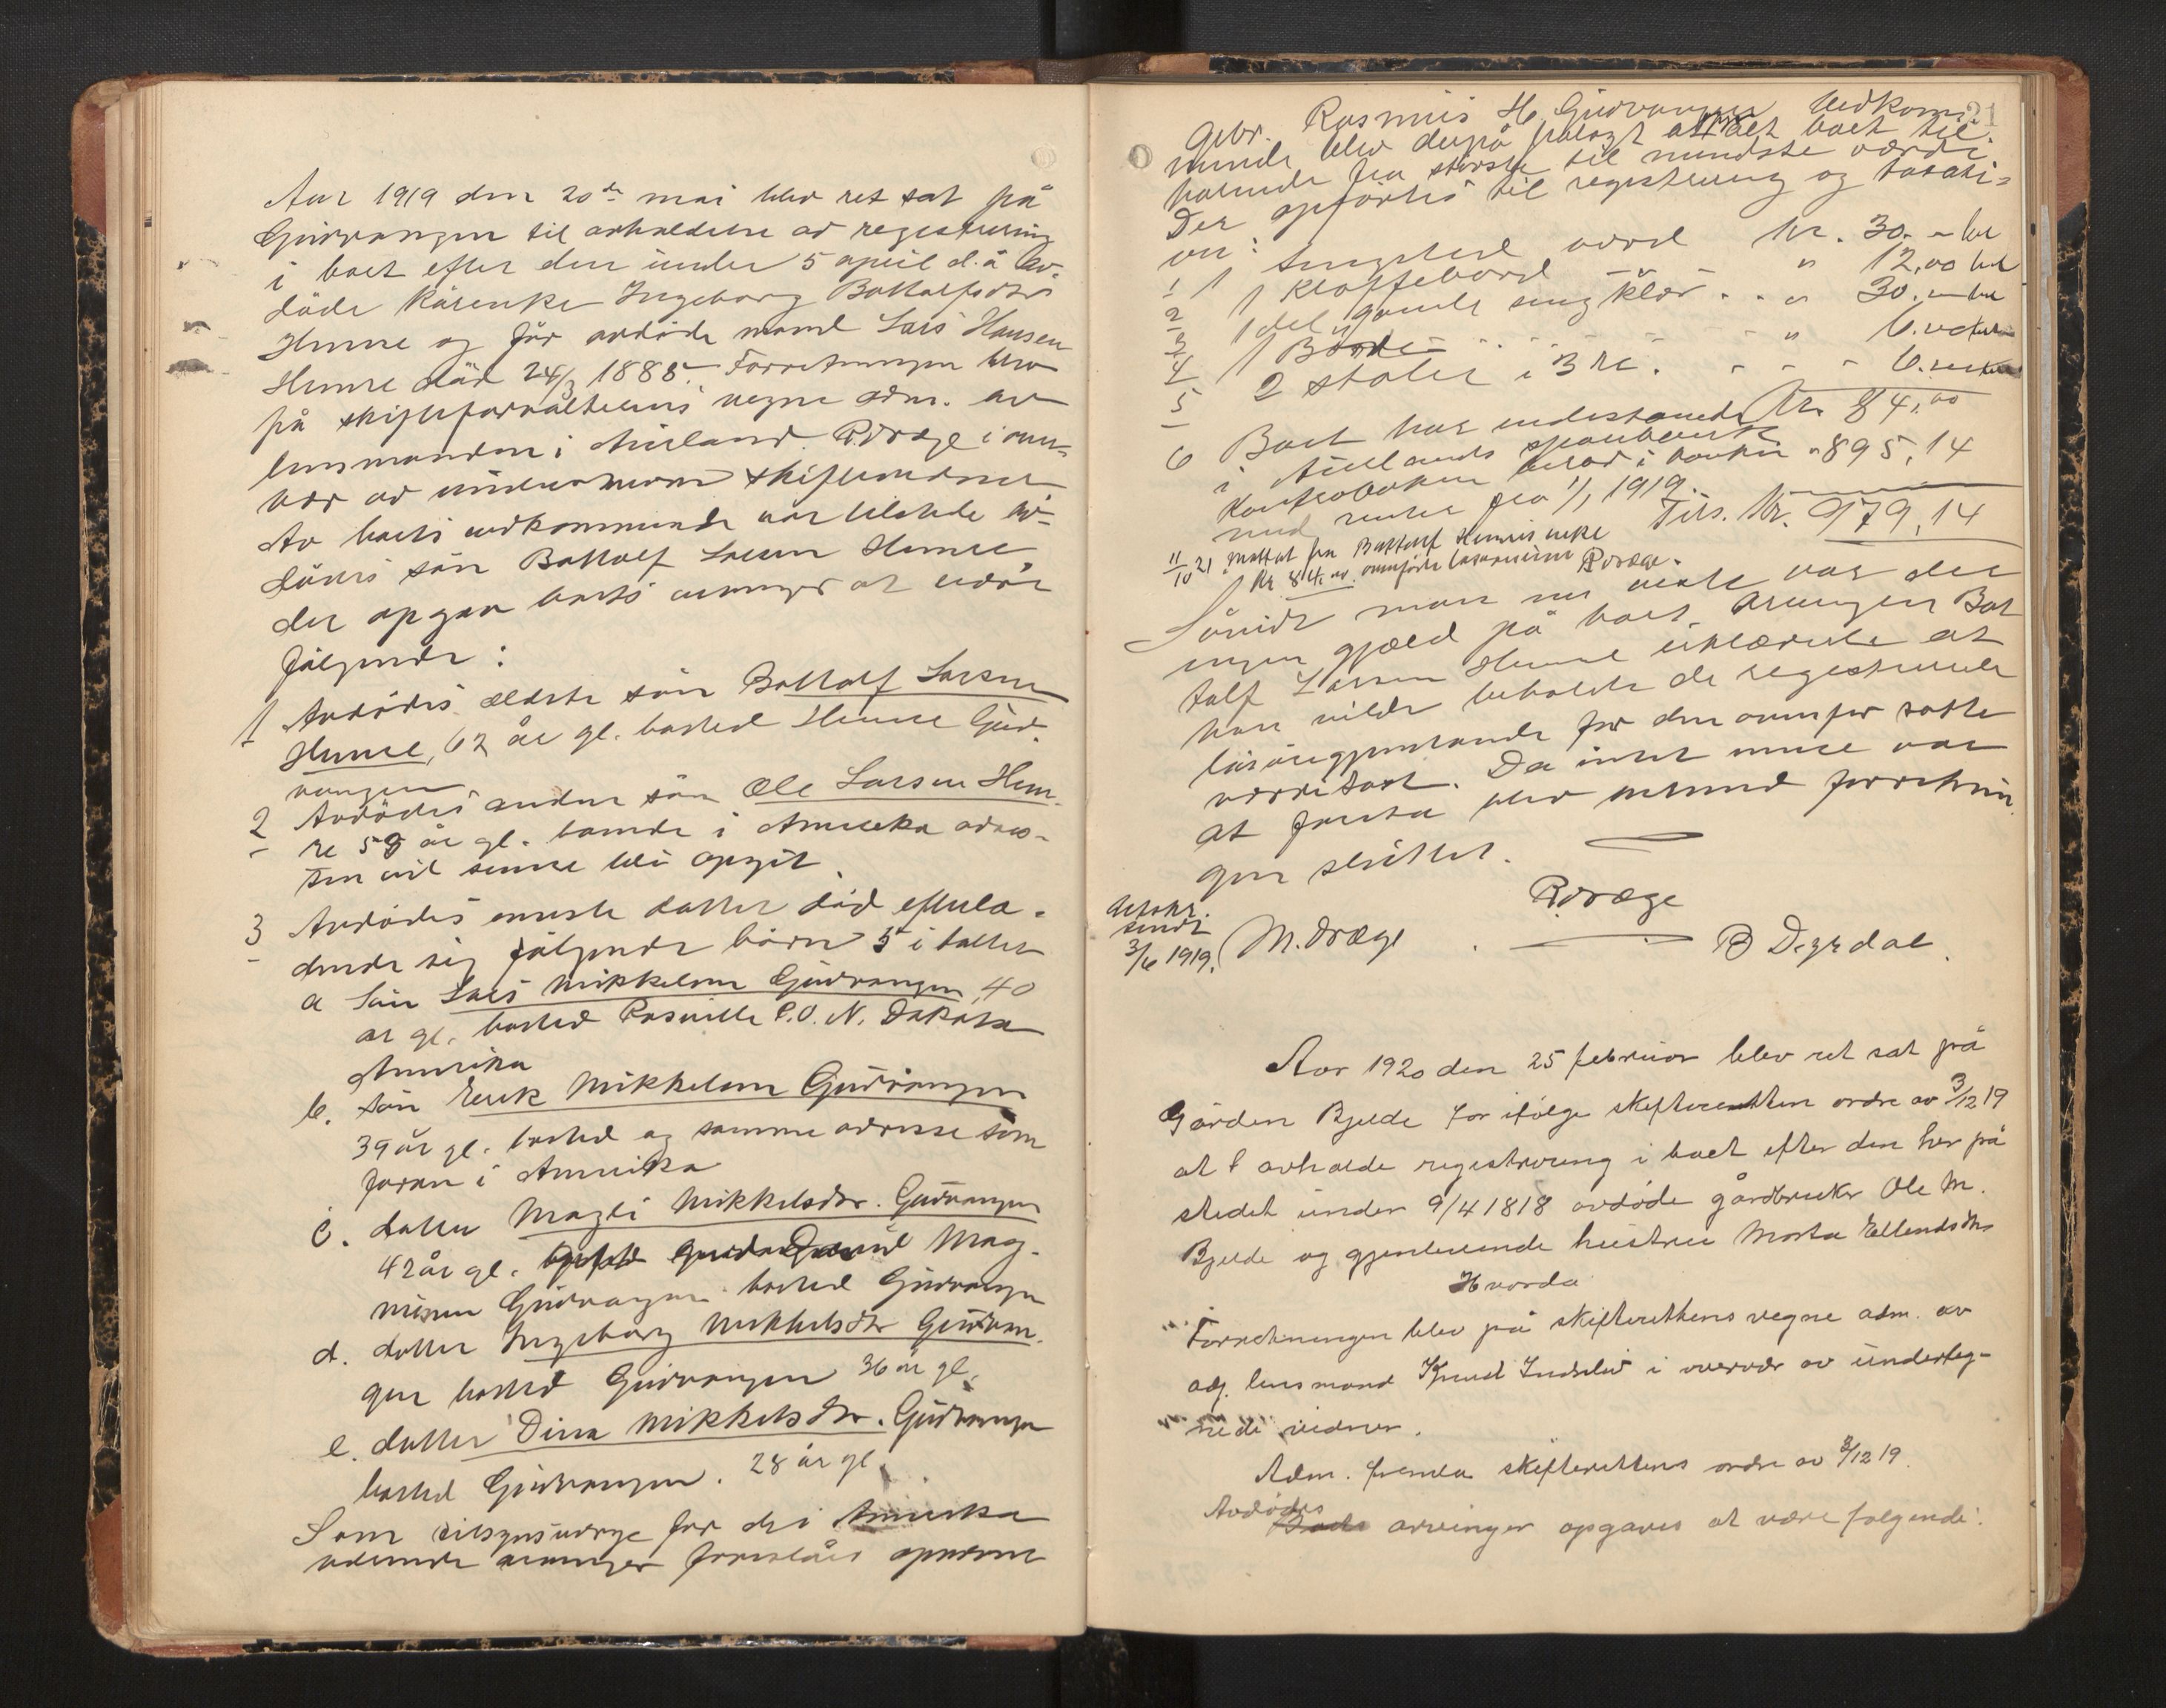 Aar 1919 den 20de mai blev ret sat på
Gudvangen til avholdelse av registrering
i boet efter den under 5 april d.å av-
döde kårenke Ingeborg Bottolfsdtr
Hemre og för avdöde mand Lars Hansen
Hemre död 24/3 1888. Forretningen blev
på skifteforvalterens vegne adm. av
lensmanden i Aurland R. Dræge i over-
vær av undertegnede skiftevidner
Av boets vedkommende var tilstede av-
dödes sön Bottolf Larsen Hemre
der opgav boets arvinger at være
følgende:
1 Avdödes eldste sön Bottolf Larsen
Hemre, 62 år gl. bosted Hemre Gud-
vangen
2 Avdödes anden sön Ole Larsen Hem-
re 59 år gl. boende i Amerika adres-
sen vil senere bli opgit.
3 Avdödes eneste datter död efterla-
dende sig fölgende börn 5 i tallet
a Sön Lars Mikkelsen Gudvangen 40
år gl. bosted P.O. N. Dakota
Amerika
b. sön Erik Mikkelsen Gudvangen
39 år gl. bosted og samme adresse som
foran i Amerika
c. datter Magli Mikkelsdtr. Gudvangen
42 år gl. Mag-
nusen Gudvangen bosted Gudvangen
d. datter Ingeborg Mikkelsdtr Gudvan-
gen bosted Gudvangen 36 år gl.
e. datter Dina Mikkelsdtr. Gudvangen
bosted Gudvangen. 28 år gl.
Som tilsynsverge for de i Amerika
værende arvinger foreslåes opnevnt
21
gbr. Rasmus H. Gudvangen Vedkom-
mende blev derpå pålagt at opgi alt boet til-
hörende fra störste til mindste værdi
Der opförtes til registrering og taxati-
on:
1 1 sengested værd kr. 30.- bet
2 1 Klaffebord " 12,00 bet
3 1 del gamle sengklær " 30.- bet
4 1 Bord " 6.00 bet
5 2 stoler i 3 kr. - 6.-
Kr. 84,00
6 Boet har indestaaende
i Aurlands sparebank
Kontrabokens beløb i banken " 895,14
med renter fra 1/1 1919.
Tils. Kr. 979,14
11/10 21 Mottat fra Bottolf Hemre
Kr 84.00 ovenförte lösöresum R Dræge.
Såvidt man nu veste var der
ingen gjæld på boet. Arvingen Bot
tolf Larsen Hemre erklærede at
han vilde beholde de registrerede
lösöregjenstande for den ovenfor satte
værditaxt. Da intet mere var
at foreta blev denne forretnin-
gen sluttet.
R. Dræge
M. Dræge B Degrdal.
Utskr.
sendt
3/6 1919.
Aar 1920 den 25 februar blev ret sat på
Gården Bjelde for ifölge skifteretten ordre av 3/12 19
at avholde registrering i boet efter den her på
stedet under 9/4 1818 avdöde gårdbruker Ole M.
Bjelde og gjenlevende hustru Marta Ellendsdtr
Hvorda
Forretningen blev på skifterettens vegne adm. av
adj. lensmand Knud Indrelid i overvær av underteg-
nede vidner.
Adm. fremla skifterettens ordre av 3/12 19.
Avdödes
Boets arvinger opgaves at være folgende: